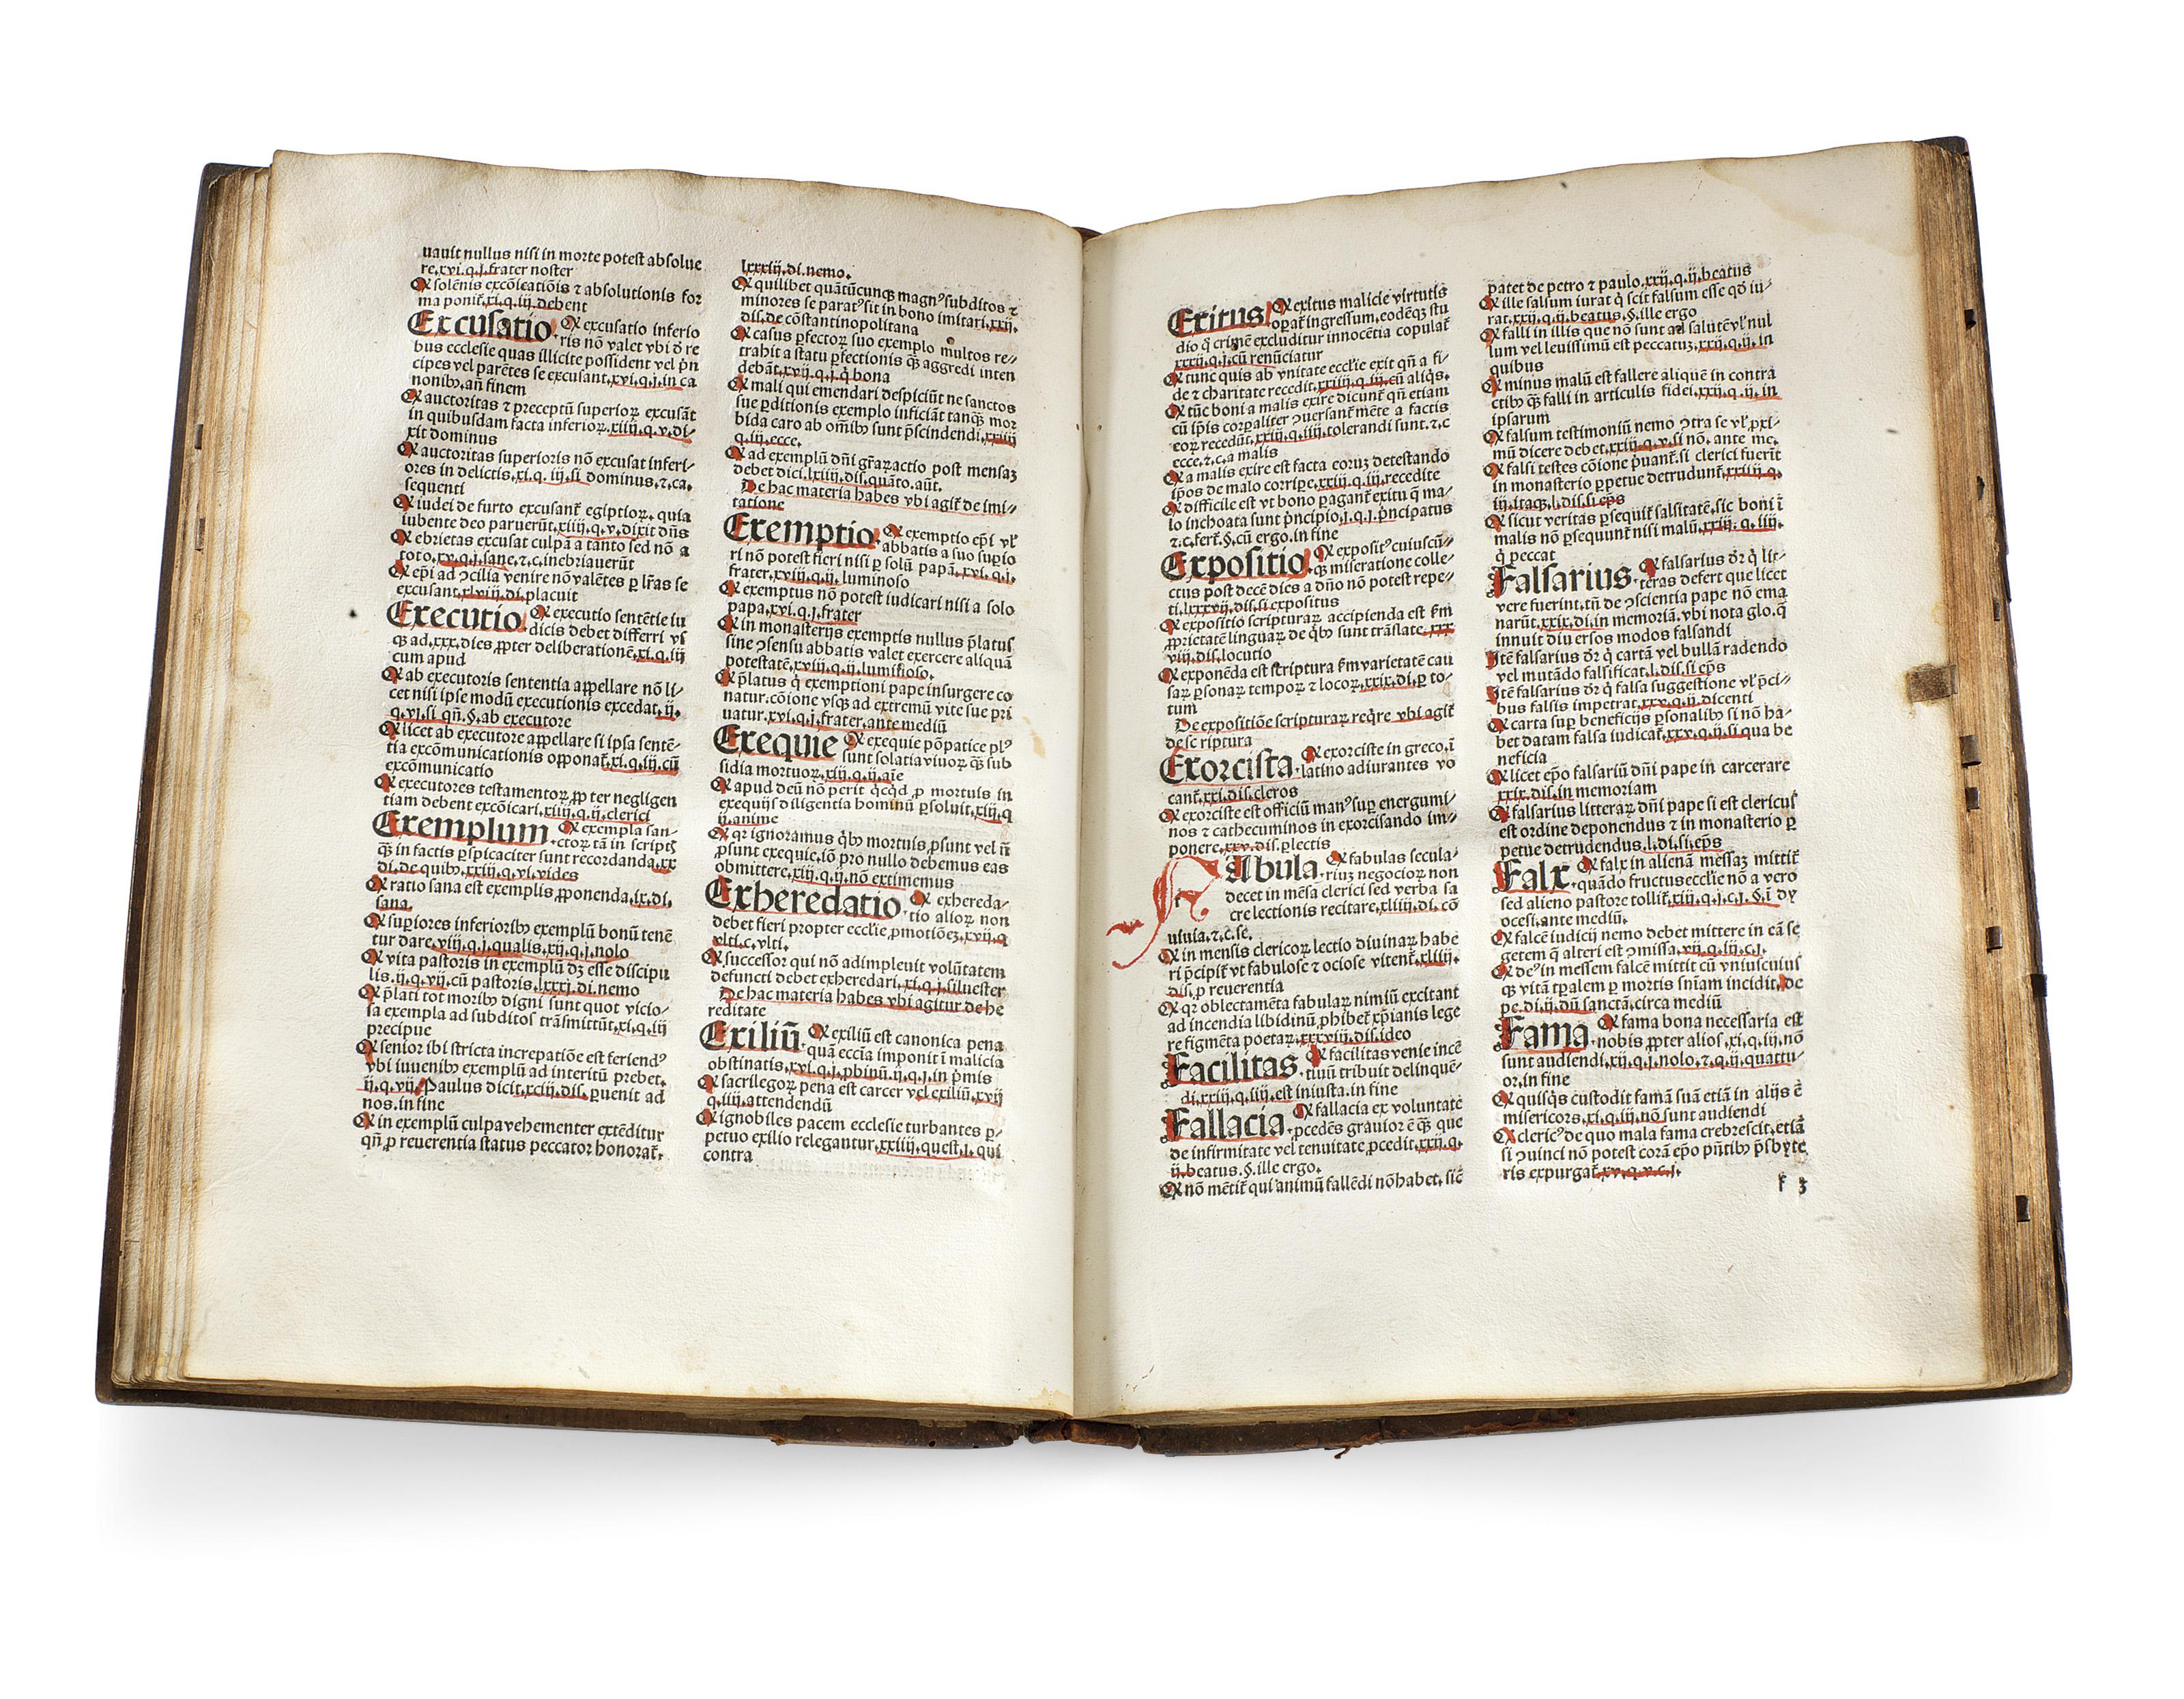 uauit nullus nisi in morte potest absolue
re.xvi.q.j.frater noster
Ꝙ solēnis excōicatiōis ⁊ absolutionis for
ma ponit̃.xi.q.iij.debent
Excusatio. Ꝙ excusatio inferio
ris nō valet vbi d̄ re
bus ecclesie quas illicite possident vel p̄n
cipes vel parētes se excusant.xvi.q.j.in ca
nonibꝫ.añ finem
Ꝙ auctoritas ⁊ preceptū superioꝝ excusāt
in quibusdam facta inferioꝝ.xiiij.q.v.di-
xit dominus
Ꝙ auctoritas superioris nō excusat inferi-
ores in delictis.xi.q. iij.si dominus.⁊.ca.
sequenti
Ꝙ iudei de furto excusant̃ egiptioꝝ. quia
iubente deo paruerūt.xiiij.q.v.dixit dñs
Ꝙ ebrietas excusat culpā a tanto sed nō a
toto.xv.q.j.sane.⁊.c.inebriauerūt
Ꝙ ep̄i ad ꝯcilia venire nō valētes ꝑ lr̄as se
excusant.xlviij.di.placuit
Executio. Ꝙ executio sentētie iu
dicis debet differri vs
qꝫ ad.xxx.dies ꝓpter deliberationē.xi.q.iij
cum apud
Ꝙ ab executoris sententia appellare nō li-
cet nisi ipse modū executionis excedat.ij.
q.vj.si qñ.§.ab executore
Ꝙ licet ab executore appellare si ipsa sentē-
tia excōmunicationis opponat̃.xi.q.iij.cū
excōmunicatio
Ꝙ executores testamentoꝝ ꝓpter negligen
tiam debent excōicari.xiiij.q.ij.clerici
Exemplum. Ꝙ exempla san-
ctoꝝ tā in scriptꝭ
qꝫ in factis ꝑspicaciter sunt recordanda.xx
di.de quibꝫ.xxiij.q.vi.vides
Ꝙ ratio sana est exemplis ꝓponenda.ix.di.
sana
Ꝙ suꝑiores inferioribꝫ exemplū bonū tenē
tur dare.viij.q.j.qualis.xij.q.j.nolo
Ꝙ vita pastoris in exemplū dꝫ esse discipu
lis.ij.q.vij.cū pastoris.lxxxj.di.nemo
Ꝙ p̄lati tot moribꝫ digni sunt quot vicio-
sa exempla ad subditos trāsmittūt.xi.q.iij
precipue
Ꝙ senior ibi stricta increpatiōe est feriendꝰ
vbi iuuenibꝫ exemplū ad interitū prebet.
ij.q.vij. Paulus dicit.xciij.dis. ꝑuenit ad
nos.in fine
Ꝙ in exemplū culpa vehementer extēditur
qñ ꝓ reuerentia status peccator honorat̃.
lxxxiij.di.nemo.
Ꝙ quilibet quātūcunqꝫ magnꝰ subditos ⁊
minores se paratꝰ sit in bono imitari.xxij.
dis.de cōstantinopolitana
Ꝙ casus ꝑfectoꝝ suo exemplo multos re-
trahit a statu ꝑfectionis qꝫ aggredi inten
debāt.xvij.q.j.q̄ bona
Ꝙ mali qui emendari despiciūt ne sanctos
sue ꝑditionis exemplo inficiāt tanqꝫ mor
bida caro ab om̄ibꝫ sunt p̄scindendi.xxiiij
q.iij.ecce.
Ꝙ ad exemplū dn̄i gr̄aꝝactio post mensaꝫ
debet dici.lxiiij.dis.quāto.aūt.
De hac materia habes vbi agit̃ de imi-
tatione
Exemptio. Ꝙ exemptio ep̄i vl̓
abbatis a suo suꝑio
ri nō potest fieri nisi ꝑ solū papā.xvi.q.j.
frater.xviij.q.ij.luminoso
Ꝙ exemptus nō potest iudicari nisi a solo
papa.xvi.q.j.frater
Ꝙ in monasterijs exemptis nullus p̄latus
sine ꝯsensu abbatis valet exercere aliquā
potestatē.xviij.q.ij.luminoso.
Ꝙ p̄latus q̄ exemptioni pape insurgere co
natur:cōione vsqꝫ ad extremū vite sue pri
uatur.xvi.q.j.frater.ante mediū
Exequie Ꝙ exequie pōpatice plꝰ
sunt solatia viuoꝝ qꝫ sub
sidia mortuoꝝ.xiij.q.ij.aīe
Ꝙ apud deū nō perit q̄cqd̄ ꝓ mortuis in
exequijs diligentia hominū ꝑsoluit.xiij.q
ij.anime
Ꝙ qꝛ ignoramus q̄bꝫ mortuis ꝓsunt vel ñ
ꝓsunt exequie.iō pro nullo debemus eas
obmittere.xiij.q.ij.nō extimemus
Exheredatio. Ꝙ exhereda-
tio alioꝝ non
debet fieri propter eccl̓ie ꝓmotiōeꝫ.xvij.q
vlti.c.vlti.
Ꝙ successor qui nō adimpleuit volūtatem
defuncti debet exheredari.xi.q.j.siluester
De hac materia habes vbi agitur de he
reditate
Exiliū. Ꝙ exiliū est canonica pena
quā eccīa imponit ī malicia
obstinatis.xvi.q.j.p̄binū.ij.q.j.in p̄mis
Ꝙ sacrilegoꝝ pena est carcer vel exiliū.xvij
q.iiij.attendendū
Ꝙ ignobiles pacem ecclesie turbantes ꝑ-
petuo exilio relegantur.xxiiij.quest.j. qui
contra
Exitus Ꝙ exitus malicie virtutis
opat̃ ingressum.eodēqꝫ stu
dio q̄ crimē excluditur innocētia copulat̃
xxxij.q.j.cū renūciatur
Ꝙ tunc quis ab vnitate eccl̓ie exit qñ a fi-
de ⁊ charitate recedit.xxiiij.q.iij.cū aliqs.
Ꝙ tūc boni a malis exire dicunt̃ qñ etiam
cū ip̄is corꝑaliter ꝯuersant̃ mēte a factis
eoꝝ recedūt.xxiij.q.iiij.tolerandi sunt.⁊.c
ecce.⁊.c.a malis
Ꝙ a malis exire est facta eoruꝫ detestando
ip̄os de malo corripe.xxiij.q.iij.recedite
Ꝙ difficile est vt bono ꝑagant̃ exitu q̄ ma-
lo inchoata sunt p̄ncipio.j.q.j.p̄ncipatus
⁊.c.fert̃.§.cū ergo.in fine
Expositio. Ꝙ expositꝰ cuiuscū-
qꝫ miseratione colle-
ctus post decē dies a dn̄o nō potest repe-
ti.lxxxvij.dis.si expositus
Ꝙ expositio scripturaꝝ accipienda est ẜm
ꝓprietatē linguaꝝ de q̄bꝫ sunt trāslate.xxx
viij.dis.locutio
Ꝙ exponēda est scriptura ẜm varietatē cau
saꝝ ꝑsonaꝝ tempoꝝ ⁊ locoꝝ.xxix.di.ꝑ to-
tum
De expositiōe scripturaꝝ reqr̄e vbi agit̃
de scriptura
Exorcista. Ꝙ exorciste in greco.ī
latino adiurantes vo
cant̃.xxi.dis.cleros
Ꝙ exorciste est officiū manꝰ suꝑ energumi-
nos ⁊ cathecuminos in exorcisando im-
ponere.xxv.dis.ꝑlectis
FAbula. Ꝙ fabulas secula-
riuꝫ negocioꝝ non
decet in mēsa clerici sed verba sa
cre lectionis recitare.xliiij.di. cō
uiuia.⁊.c.se.
Ꝙ in mensis clericoꝝ lectio diuinaꝝ habe
ri p̄cipit̃ vt fabulose ⁊ ociose vitent̃.xliiij.
dis.ꝓ reuerentia
Ꝙ qꝛ oblectamēta fabulaꝝ nimiū excitant
ad incendia libidinū ꝓhibet̃ xp̄ianis lege
re figmēta poetaꝝ.xxxvij.dis.ideo
Facilitas. Ꝙ facilitas venie incē
tiuū tribuit delinquē-
di.xxiij.q.iiij.est iniusta.in fine
Fallacia. Ꝙ fallacia ex voluntate
ꝓcedēs grauior ē qꝫ que
de infirmitate vel tenuitate ꝓcedit.xxij.q.
ij.beatus.§.ille ergo.
Ꝙ nō mētit̃ qui animū fallēdi nō habet. sic
patet de petro ⁊ paulo.xxij.q.ij.beatus
Ꝙ ille falsum iurat q̄ scit falsum esse qd̄ iu-
rat.xxij.q.ij.beatus.§.ille ergo
Ꝙ falli in illis que nō sunt ad salutē vl̓ nul
lum vel leuissimū est peccatuꝫ.xxij.q.ij.in
quibus
Ꝙ minus malū est fallere aliquē in contra
ctibꝫ qꝫ falli in articulis fidei.xxij.q.ij.in
ipsarum
Ꝙ falsum testimoniū nemo ꝯtra se vl̓ ꝓxi-
mū dicere debet.xxiij.q.v.si nō. ante me.
Ꝙ falsi testes cōione p̄uant̃.si clerici fuerit̃
in monasterio ꝑpetue detrudunt̃.xxiiij.q.
iij.itaqꝫ.l.dis.si ep̄s
Ꝙ sicut veritas ꝑsequit̃ falsitatē.sic boni ī
malis nō ꝑsequunt̃ nisi malū.xxiij. q. iiij.
q̄ peccat
Falsarius. Ꝙ falsarius dr̄ q̄ lit-
teras defert que licet
vere fuerint.tn̄ de ꝯscientia pape nō ema
narūt.xxix.di.in memoriā.vbi nota glo.q̄
innuit diuersos modos falsandi
Itē falsarius dr̄ q̄ cartā vel bullā radendo
vel mutādo falsificat.l.dis.si ep̄s
Itē falsarius dr̄ q̄ falsa suggestione vl̓ p̄ci-
bus falsis impetrat.xxv.q.ij.dicenti
Ꝙ carta suꝑ beneficijs ꝑsonalibꝫ si nō ha-
bet datam falsa iudicat̃.xxv.q.ij.si qua be
neficia
Ꝙ licet ep̄o falsariū dn̄i pape in carcerare
xxix.dis.in memoriam
Ꝙ falsarius litteraꝝ dn̄i pape si est clericus
est ordine deponendus ⁊ in monasterio ꝑ
petue detrudendus.l.di.si.ep̄s
Falx. Ꝙ falx in alienā messaꝫ mittit̃
quādo fructus eccl̓ie nō a vero
sed alieno pastore tollit̃.xiij.q.j.c.j. §.ī dy
ocesi.ante mediū.
Ꝙ falcē iudicij nemo debet mittere in eā se
getem q̄ alteri est ꝯmissa.vij.q.iij.c.j.
Ꝙ deꝰ in messem falcē mittit cū vniuscuius
qꝫ vitā tꝑalem ꝑ mortis sniam incidit. de
pe.di.ij.dū sanctā.circa mediū
Fama. Ꝙ fama bona necessaria est
nobis ꝓpter alios.xi.q.iij.nō
sunt audiendi.xij.q.j.nolo.⁊.q.ij.quattu-
or.in fine
Ꝙ quisqs custodit famā suā etiā in alijs ē
misericors.xi.q.iij.nō sunt audiendi
Ꝙ clericꝰ de quo mala fama crebrescit.etiā
si ꝯuinci nō potest corā ep̄o pn̄tibꝫ p̄sbyte
ris expurgat̃.xv.q.v.c.j.
f 3